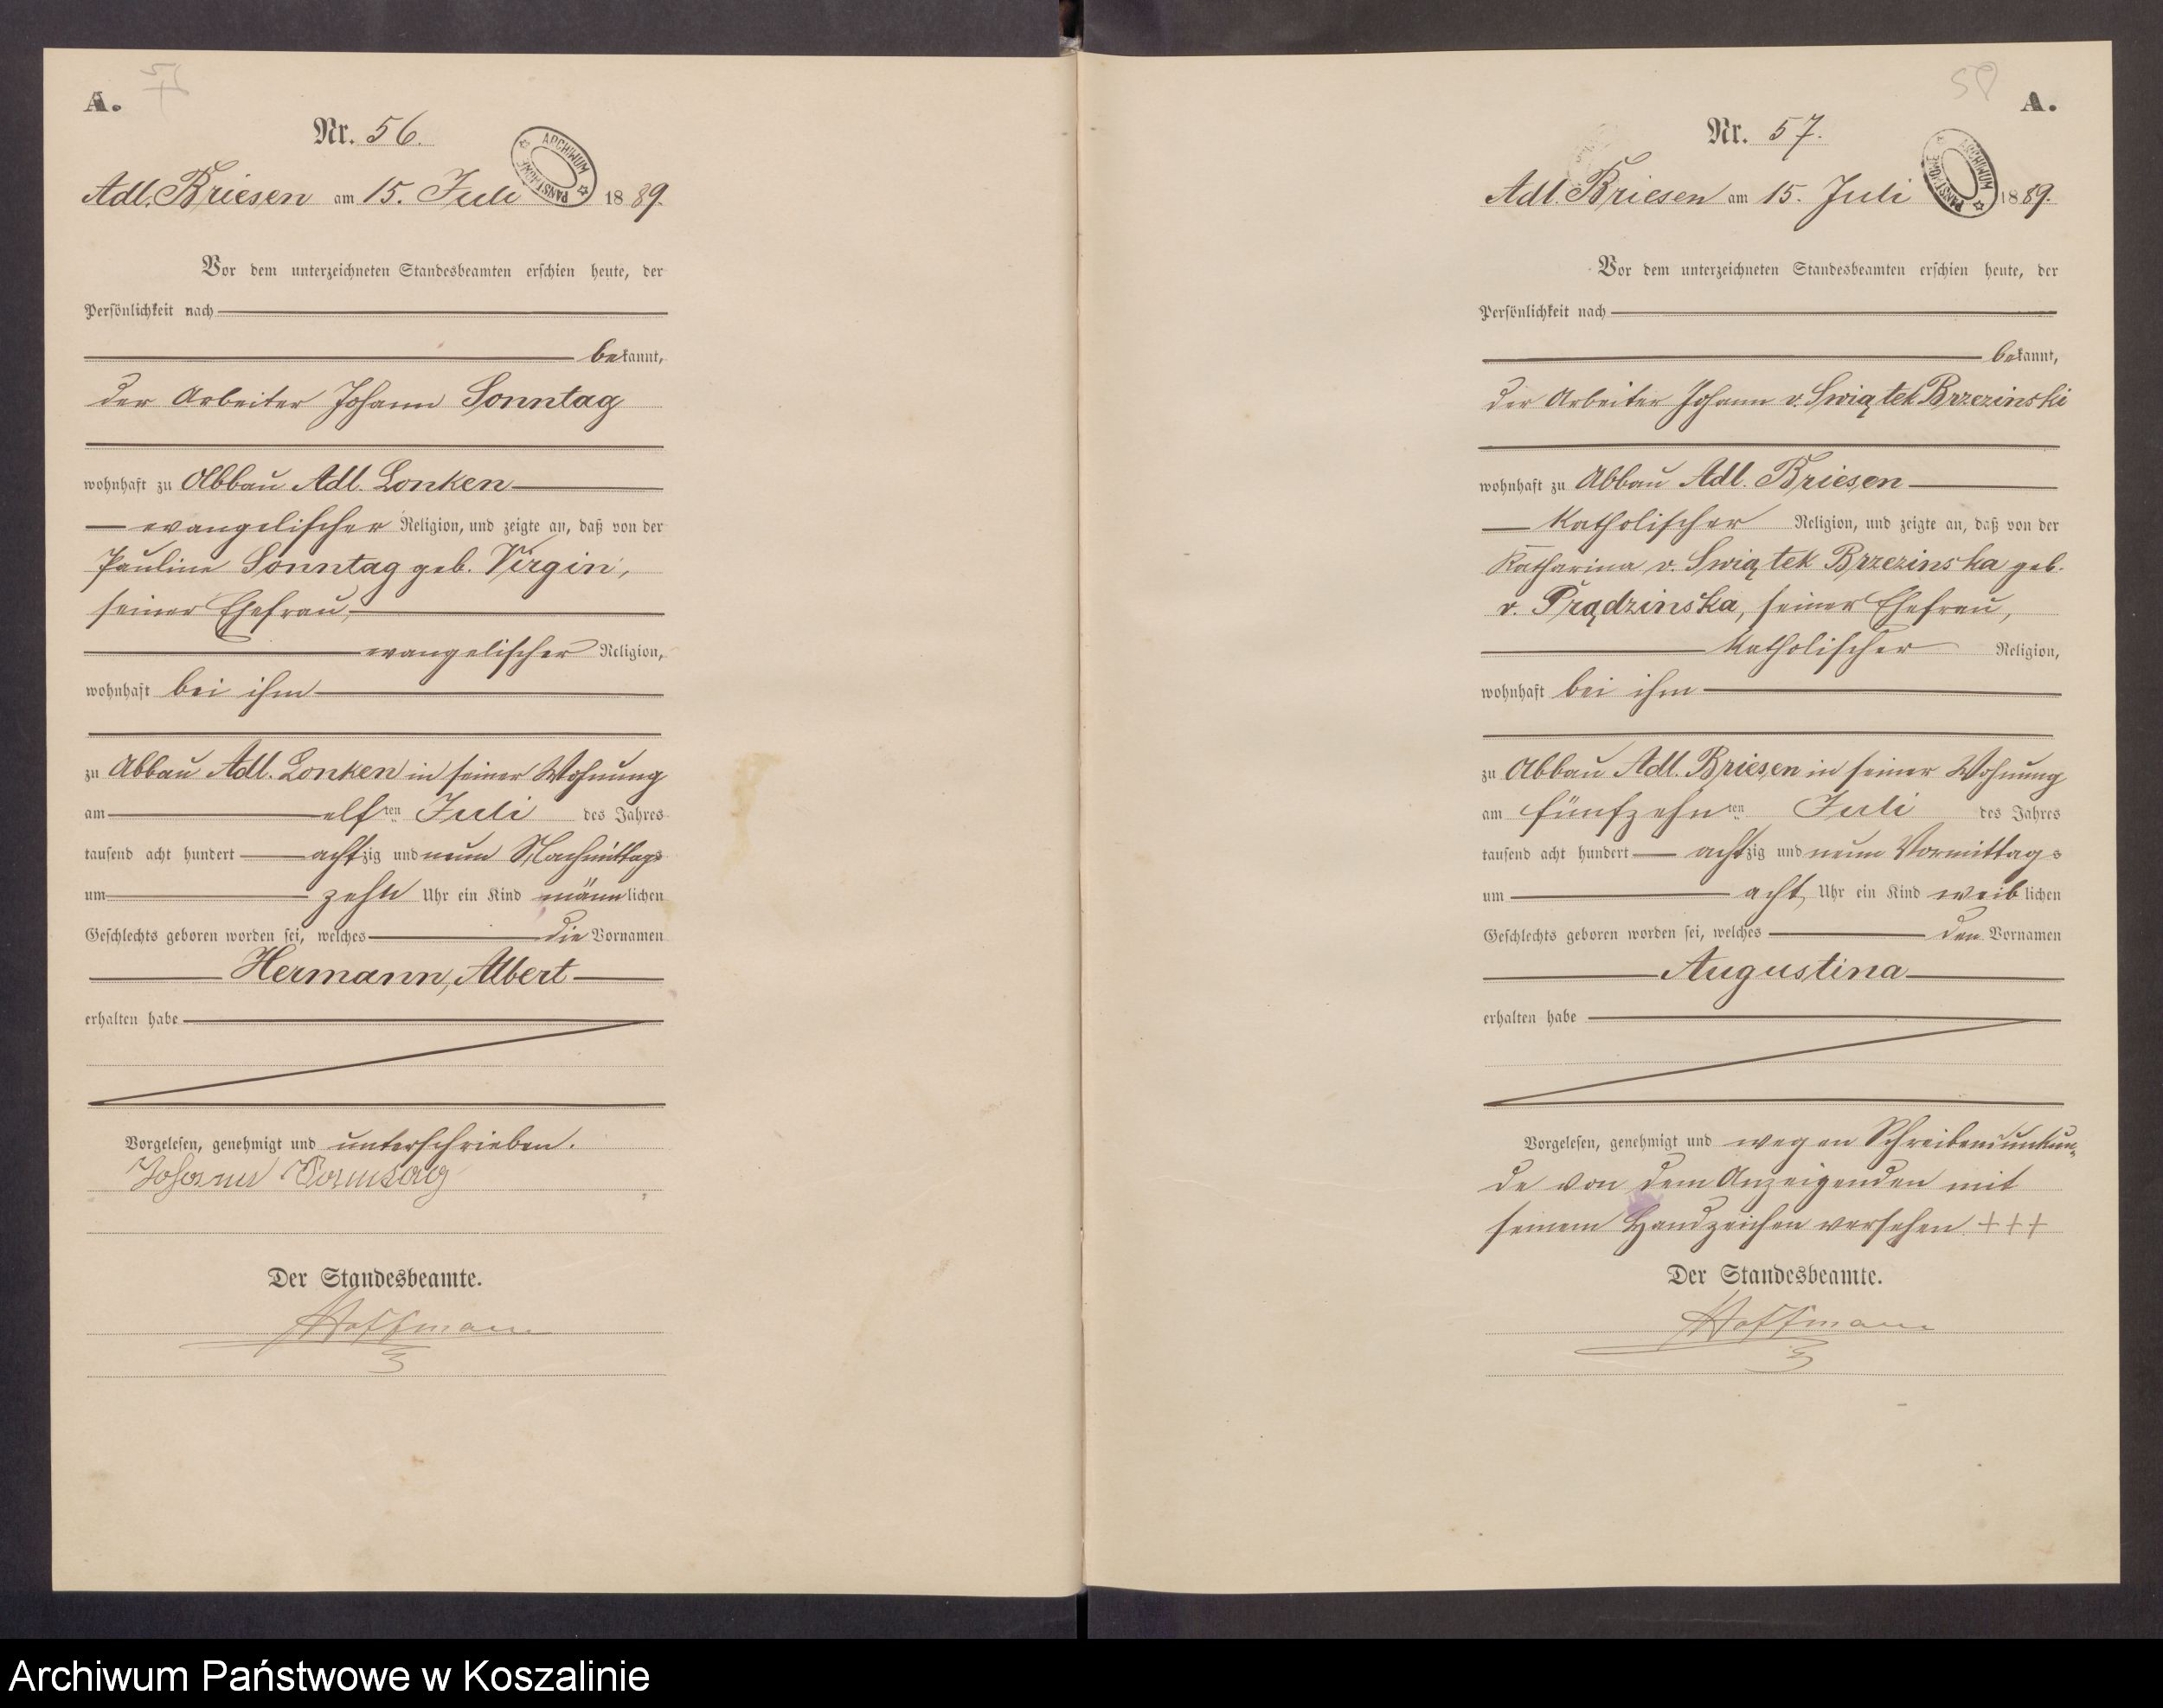 A.
Nr. 56.
Adl. Briesen am 15. Juli 1889.
ARCHIWUM PAŃSTWOWE
Vor dem unterzeichneten Standesbeamten erschien heute, der
Persönlichkeit nach
bekannt,
der Arbeiter Johann Sonntag
wohnhaft zu Abbau Adl. Lonken
evangelischer Religion, und zeigte an, daß von der
Pauline Sonntag geb. Virgin,
seiner Ehefrau,
evangelischer Religion,
wohnhaft bei ihm
zu Abbau Adl. Lonken in seiner Wohnung
am elften Juli des Jahres
tausend acht hundert achtzig und neun Nachmittags
um zehn Uhr ein Kind männlichen
Geschlechts geboren worden sei, welches die Vornamen
Hermann, Albert
erhalten habe
Vorgelesen, genehmigt und unterschrieben.
Johann Sonntag
Der Standesbeamte.
Hoffmann
58
A.
Nr. 57.
Adl. Briesen am 15. Juli 1889.
ARCHIWUM PAŃSTWOWE
Vor dem unterzeichneten Standesbeamten erschien heute, der
Persönlichkeit nach
bekannt,
der Arbeiter Johann v. Swiątek Brzezinski
wohnhaft zu Abbau Adl. Briesen
katholischer Religion, und zeigte an, daß von der
Katharina v. Swiątek Brzezinska geb.
v. Prądzinska, seiner Ehefrau,
katholischer Religion,
wohnhaft bei ihm
zu Abbau Adl. Briesen in seiner Wohnung
am fünfzehnten Juli des Jahres
tausend acht hundert achtzig und neun Vormittags
um acht Uhr ein Kind weiblichen
Geschlechts geboren worden sei, welches den Vornamen
Augustina
erhalten habe
Vorgelesen, genehmigt und wegen Schreibensunkun-
de von dem Anzeigenden mit
seinem Handzeichen versehen +++
Der Standesbeamte.
Hoffmann
Archiwum Państwowe w Koszalinie